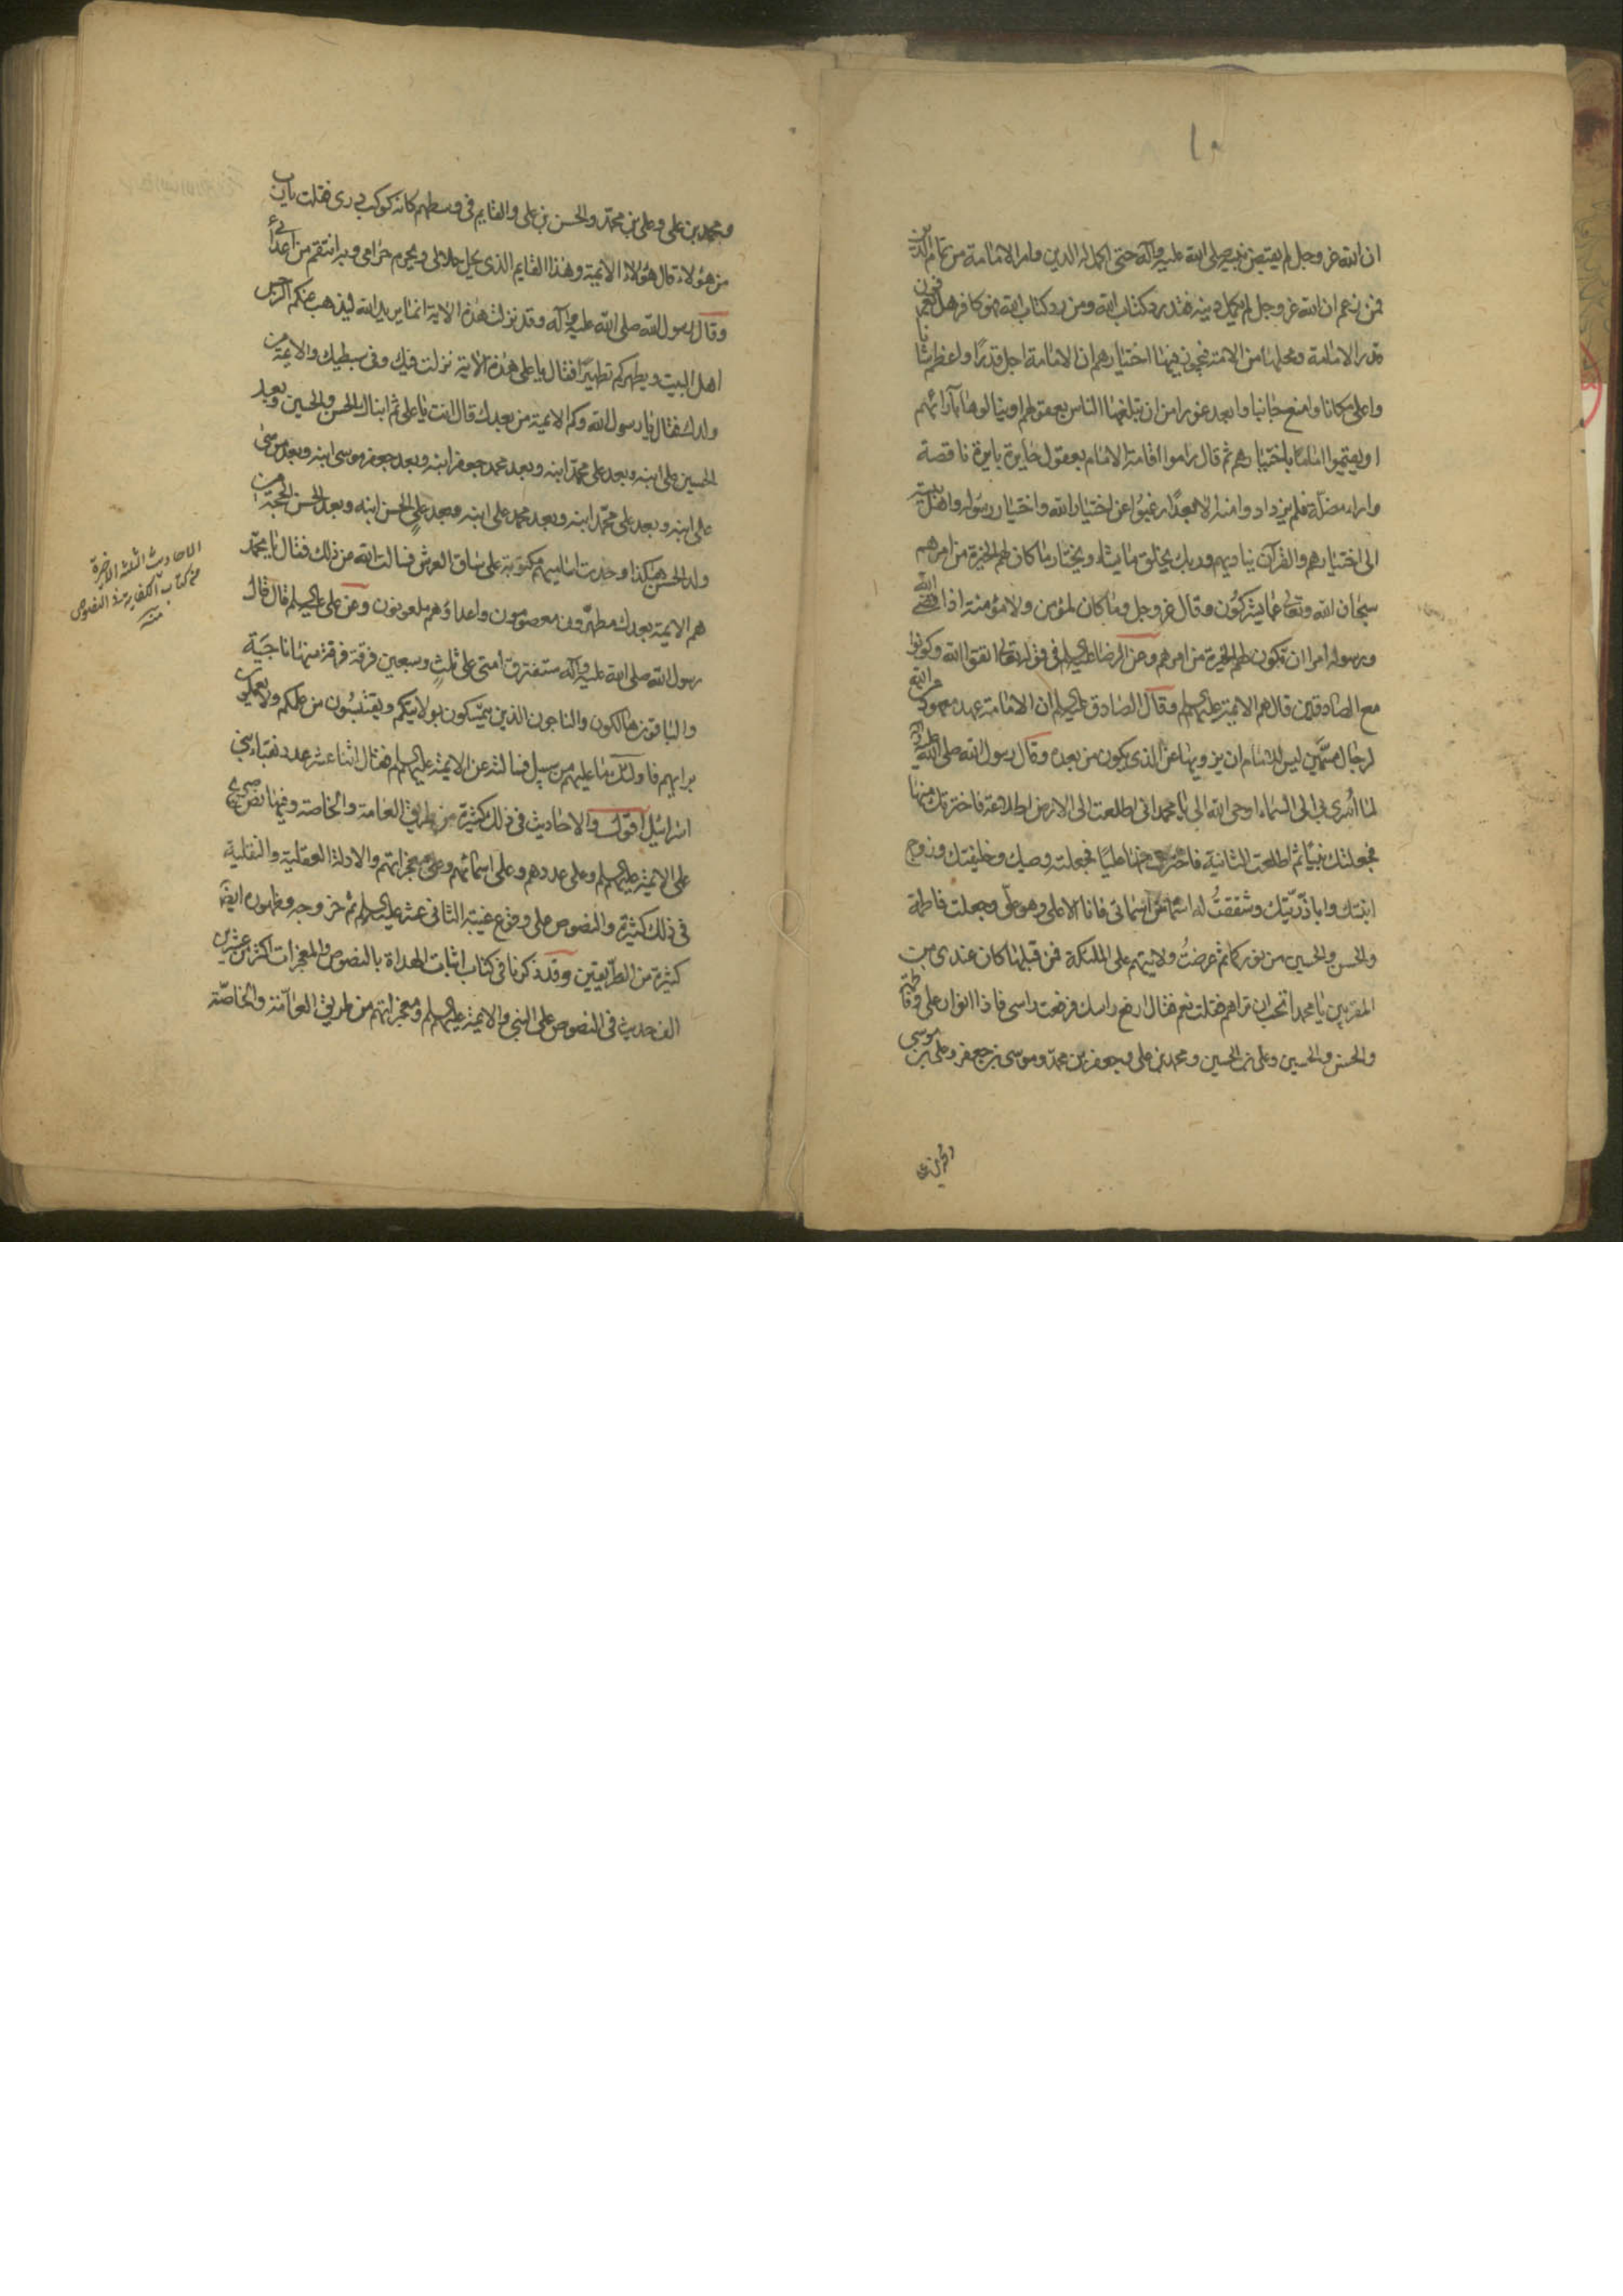 ١٠
ان الله عز وجل لم يقبض نبيه صلى الله عليه وآله حتى اكمل له الدين وامر الامامة من تمام الدين
فمن زعم ان الله عز وجل لم يكمل دينه فقد رد كتاب الله ومن رد كتاب الله فهو كافر هل يعرفون
قدر الامامة ومحلها من الامة فيجوز فيها اختيارهم ان الامامة اجل قدرًا واعظم شانا
واعلى مكانا وامنع جانبا وابعد غورا من ان تبلغها الناس بعقولهم او ينالوها بآرائهم
او يقيموا امامًا باختيارهم ثم قال راموا اقامة الامام بعقول حايرة بايرة ناقصة
واراء مضلة فلم يزدادوا منه الا بعدًا رغبوا عن اختيار الله واختيار رسوله واهل بيته
الى اختيارهم والقرآن يناديهم وربك يخلق ما يشاء ويختار ما كان لهم الخيرة من امرهم
سبحان الله وتعالى عما يشركون وقال عز وجل وما كان لمؤمن ولا مؤمنة اذا قضى الله
ورسوله امرا ان تكون لهم الخيرة من امرهم وعن الرضا عليه السلم في قوله تعالى اتقوا الله وكونوا
مع الصادقين قال هم الائمة عليهم السلم وقال الصادق عليه السلم ان الامامة عهد من الله معهود
لرجال مسمّين ليس للامام ان يزويها عن الذى يكون من بعده وقال رسول الله صلى الله عليه وآله
لما اسرى بى الى السماء اوحى الله الىّ يا محمد انى اطلعت الى الارض اطلاعة فاخترتك منها
فجعلتك نبيًا ثم اطلعت الثانية فاخترت منها عليًا فجعلته وصيك وخليفتك وزوج
ابنتك وابا ذرّيّتك وشققتُ له اسمًا من اسمائى فانا الاعلى وهو علىّ وجعلت فاطمة
والحسن والحسين من نوركما ثم عرضتُ ولايتهم على الملئكة فمن قبلها كان عندى من
المقربين يا محمد اتحب ان تراهم فقلت نعم فقال ارفع راسك فرفعت راسى فاذا انوار على وفاطمة
والحسن والحسين وعلى بن الحسين ومحمد بن على وجعفر بن محمد وموسى بن جعفر وعلى بن موسى
ومحمد بن على وعلى بن محمد والحسن بن على والقايم فى وسطهم كانه كوكب درى فقلت يا رب
من هؤلاء قال هؤلاء الايمة وهذا القايم الذى يحل حلالى ويحرم حرامى وبه انتقم من اعدائى
وقال رسول الله صلى الله عليه وآله وقد نزلت هذه الاية انما يريد الله ليذهب عنكم الرجس
اهل البيت ويطهركم تطهيرًا فقال يا على هذه الآية نزلت فيك وفى سبطيك والايمة من
ولدك فقال يا رسول الله وكم الايمة من بعدك قال انت يا على ثم ابناك الحسن والحسين وبعد
الحسين على ابنه وبعد على محمد ابنه وبعد محمد جعفر ابنه وبعد جعفر موسى ابنه وبعد موسى
على ابنه وبعد على محمد ابنه وبعد محمد على ابنه وبعد على الحسن ابنه وبعد الحسن الحجة من
ولد الحسن هكذا وجدت اساميهم مكتوبة على ساق العرش فسالت الله من ذلك فقال يا محمد
هم الايمة بعدك مطهرون معصومون واعداؤهم ملعونون وعن على عليه السلم قال قال
رسول الله صلى الله عليه وآله ستفترق امتى على ثلث وسبعين فرقة فرقة منها ناجية
والباقون هالكون والناجون الذين يتمسكون بولايتكم ويقتبسون من علمكم ولا يعملون
برايهم فاولئك ما عليهم من سبيل فسالته عن الايمة عليهم السلم فقال اثنا عشر عدد نقباء بنى
اسرائيل اقول والاحاديث فى ذلك كثيرة من طريق العامة والخاصة وفيها نص صريح
على الايمة عليهم السلم وعلى عددهم وعلى اسمائهم وعلى معجزاتهم والادلة العقلية والنقلية
فى ذلك كثيرة والنصوص على وقوع غيبة الثانى عشر عليه السلم ثم خروجه وظهوره ايضًا
كثيرة من الطريقين وقد ذكرنا فى كتاب اثبات الهداة بالنصوص والمعجزات اكثر من عشرين
الف حديث فى النصوص على النبى والايمة عليهم السلم ومعجزاتهم من طريق العامّة والخاصّة
الاحاديث الثلثة الاخيرة
من كتاب الكفاية فى النصوص
منه